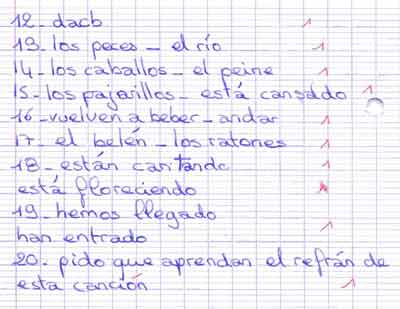 12_ dacb
13_ los peces _ el río
14_ los caballos _ el peine
15_ los pajarillos _ está cansado
16_ vuelven a beber _ andar
17_ el belén _ los ratones
18_ están cantando
está floreciendo
19_ hemos llegado
han entrado
20_ pido que aprendan el refrán de
esta canción